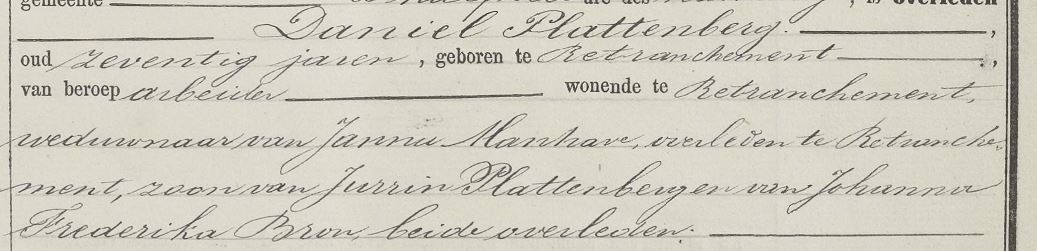 gemeente
, is overleden
Daniel Plattenberg. ,
oud zeventig jaren , geboren te Retranchement ,
van beroep arbeider wonende te Retranchement,
weduwnaar van Janna Manhave, overleden te Retranche-
ment, zoon van Jurrin Plattenberg en van Johanna
Frederika Bron, beide overleden.